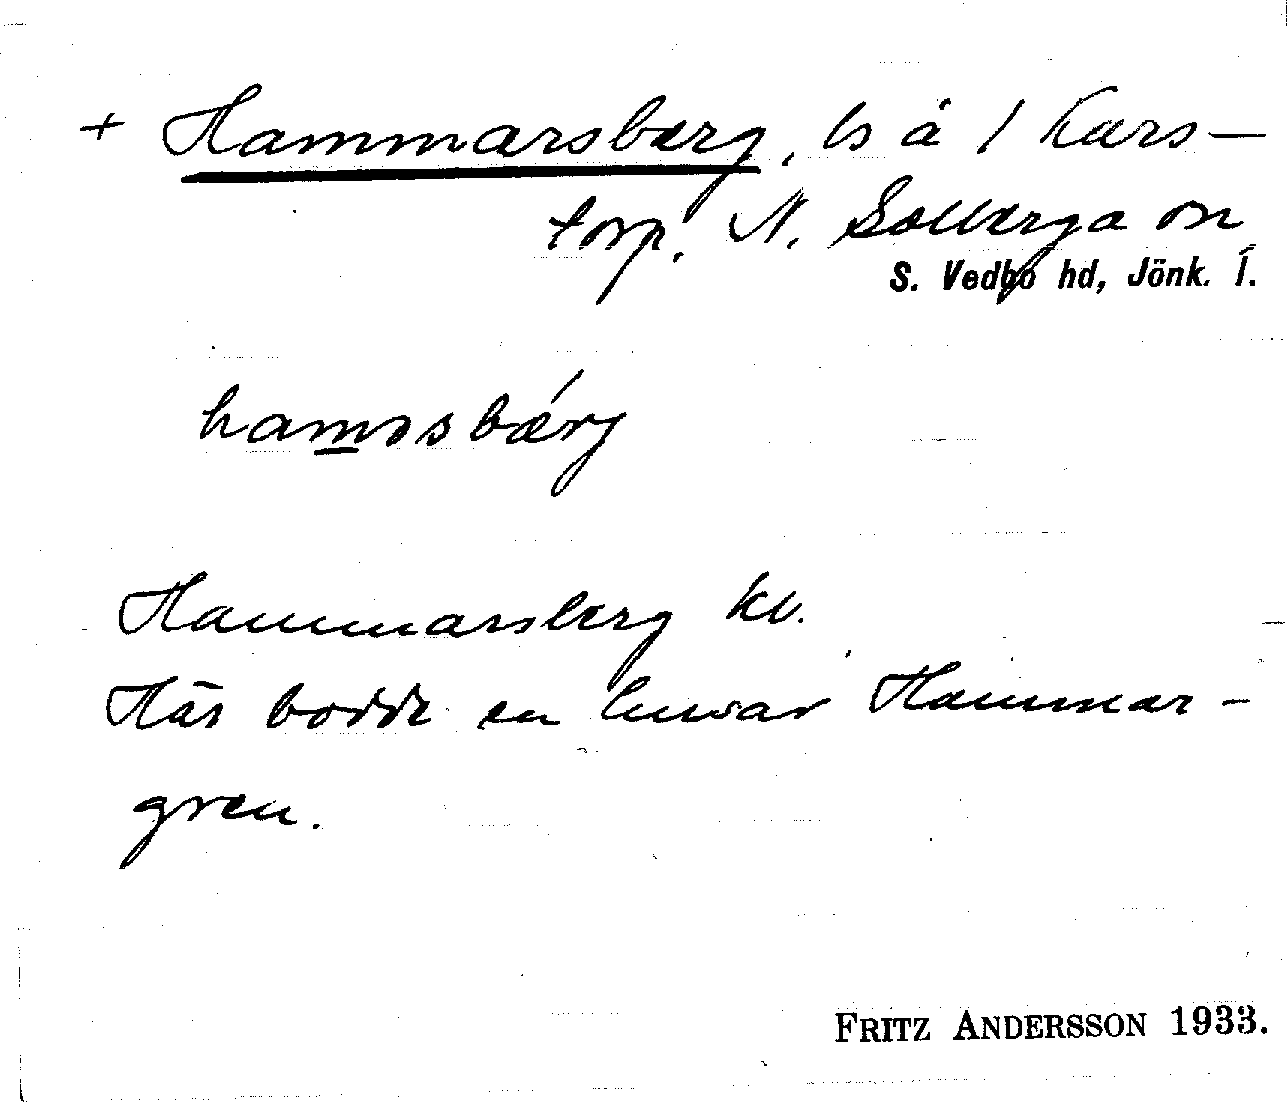 + Hammarsberg, ls å 1 Kars-
torp. N. Solberga sn
S. Vedbo hd, Jönk. l.
hamɔsbǽrj
Hammarsberg kv.
Här bodde en husar Hammar-
gren.
FRITZ ANDERSSON 1933.